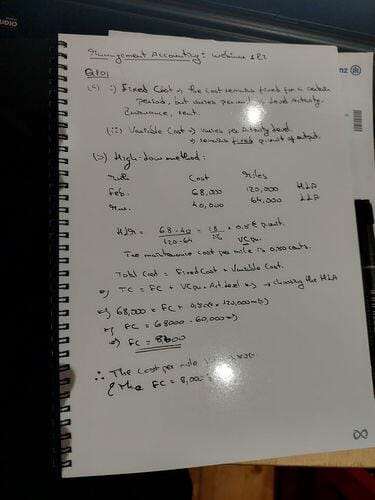 Management Accounting: Webinar 1&2
Q101
(a) i) Fixed Cost → the cost remains fixed for a certain
period, but varies per unit of level activity.
Insurance, rent.
(ii) Variable Cost → varies per Activity level
→ remains fixed p. unit of output.
(b) High-low method:
Cost Miles
Feb. 68,000 120,000 HLA
40,000 64,000 LLA
68-40 = 28 = 0.5€ p.unit.
120-64 56 VCpu.
The maintenance cost per mile is 0,50 cents.
Total Cost = Fixed Cost + Variable Cost.
=) TC = FC + VCpu. Act. level => → choosing the HLA
=) 68,000 = FC + 0,50€ × 120,000
=) FC = 68000 - 60,000 =)
=) FC = 8000
∴ The cost per mile
& the FC = 8,000
nz